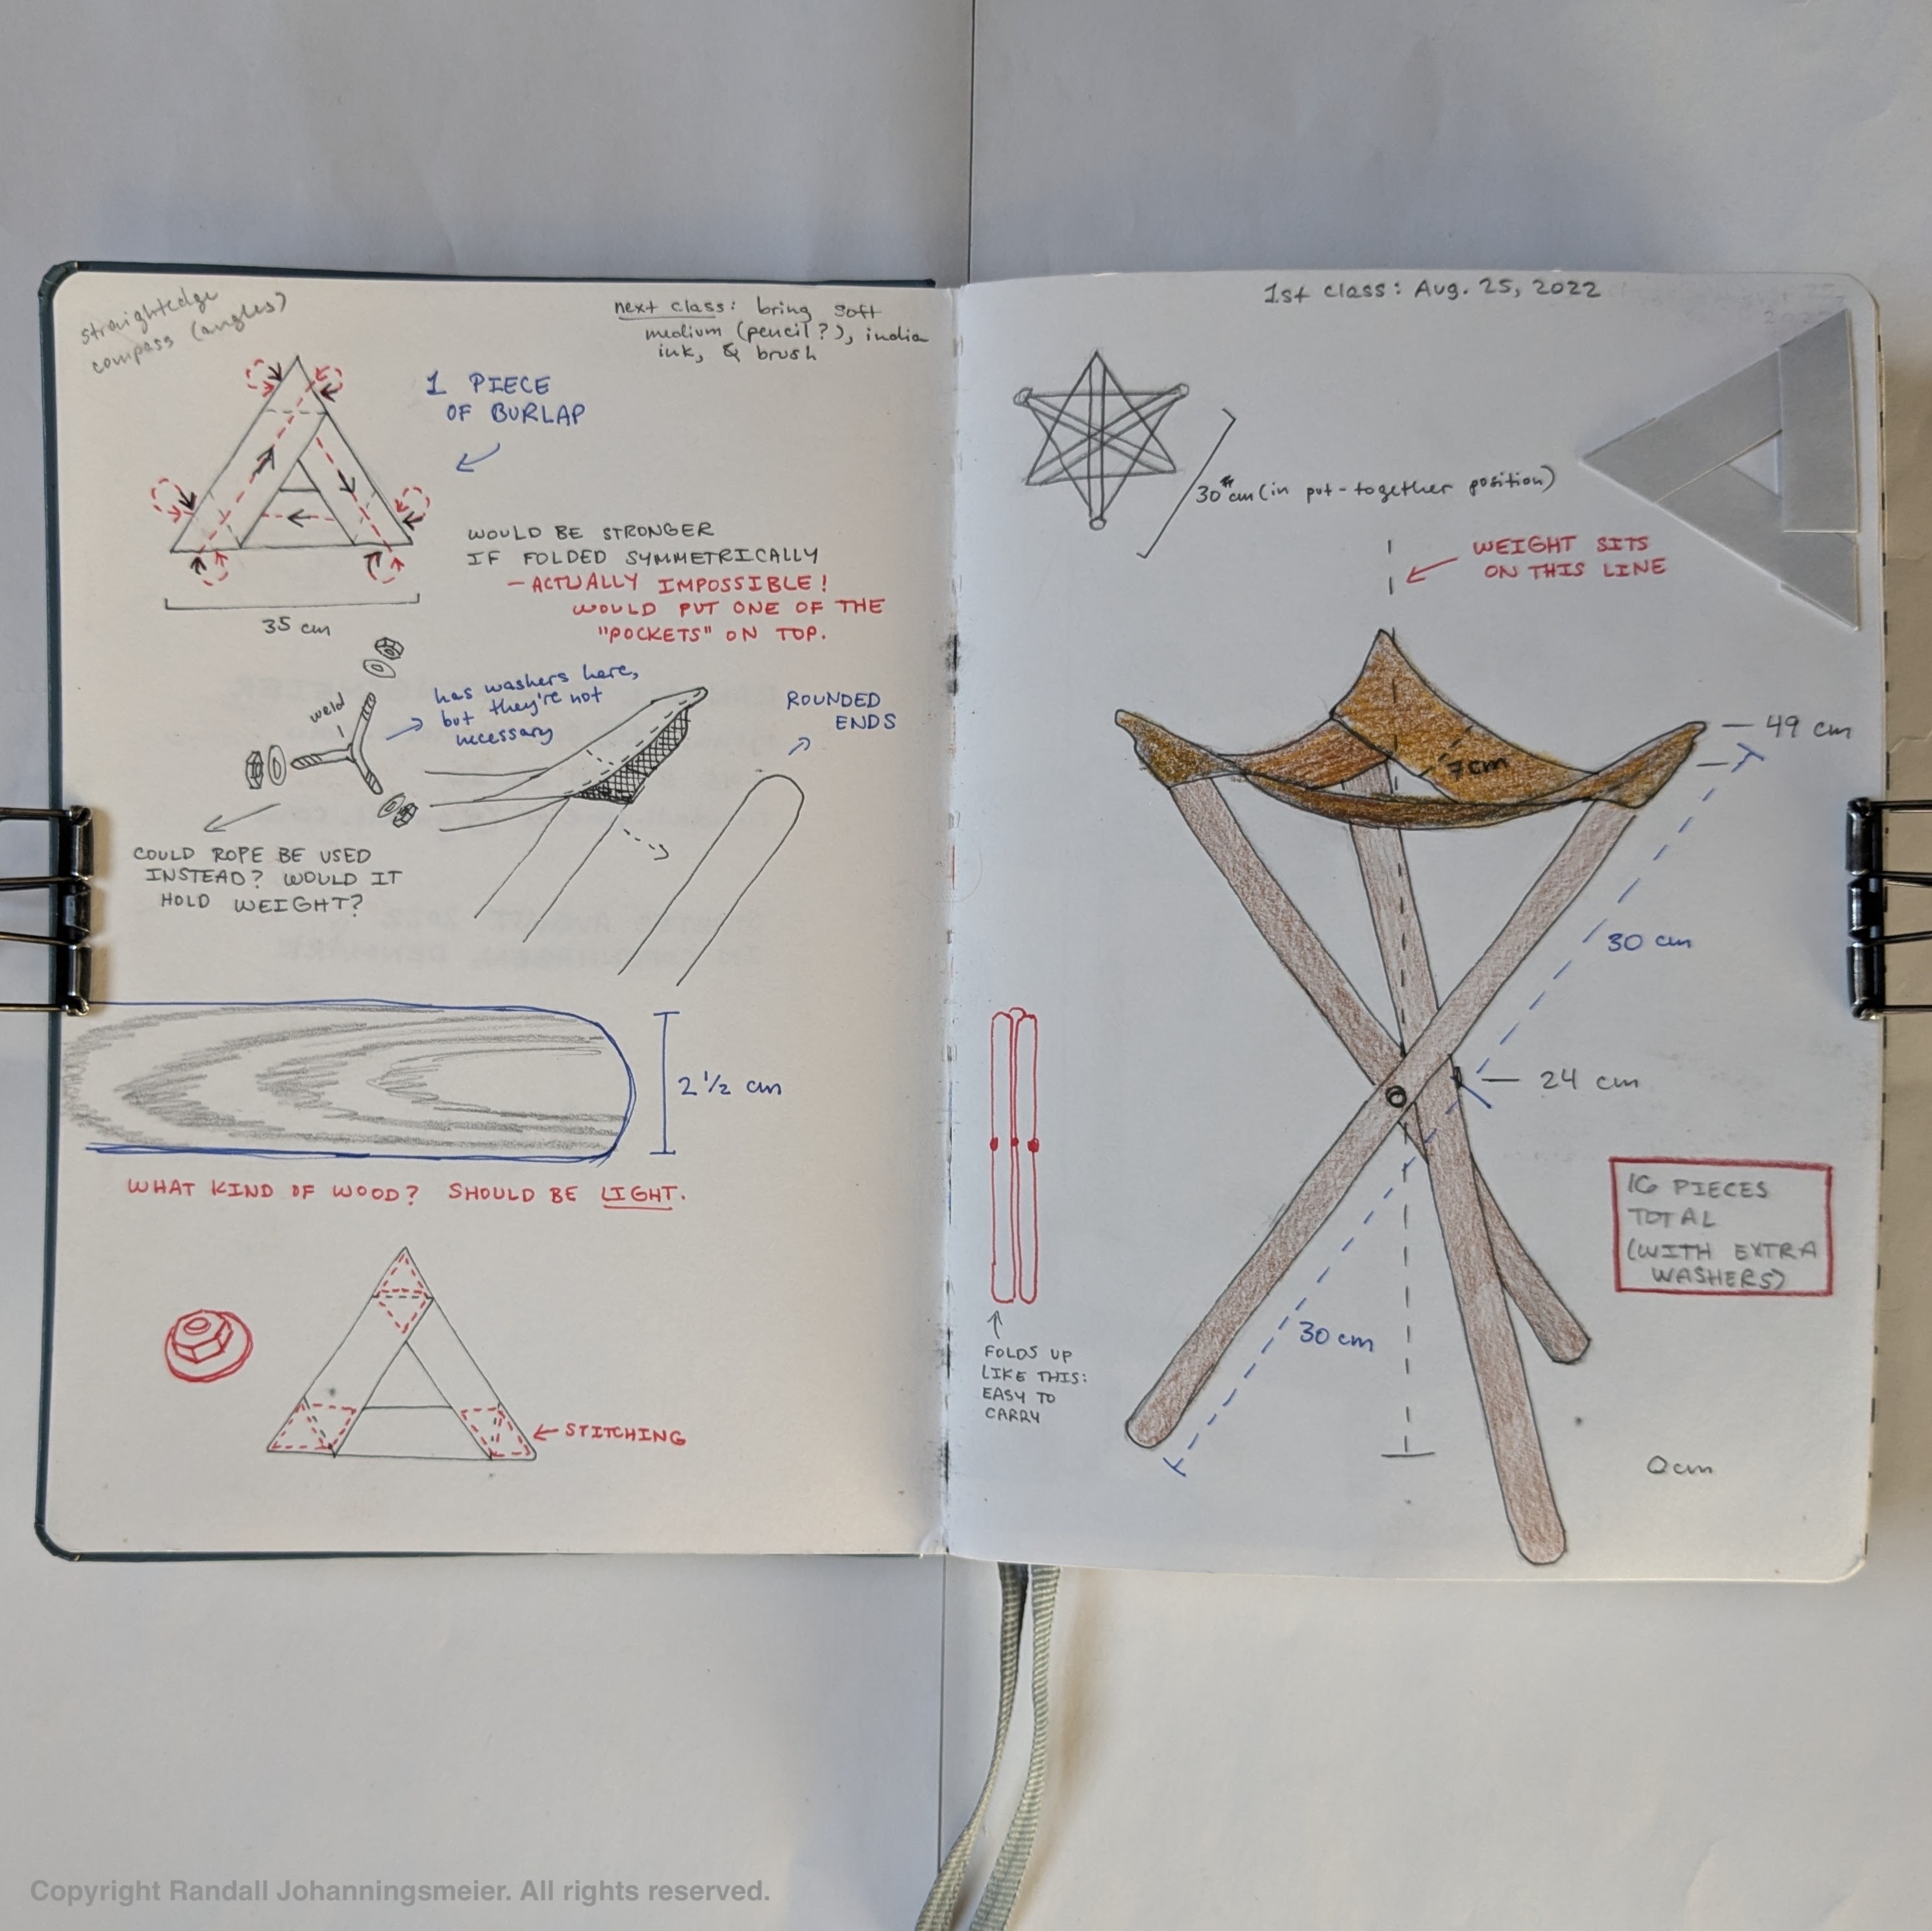 straightedge
compass (angles)
next class: bring soft
medium (pencil?), india
ink, & brush
1 PIECE
OF BURLAP
WOULD BE STRONGER
IF FOLDED SYMMETRICALLY
- ACTUALLY IMPOSSIBLE!
WOULD PUT ONE OF THE
"POCKETS" ON TOP.
35 cm
weld
has washers here,
but they're not
necessary
ROUNDED
ENDS
COULD ROPE BE USED
INSTEAD? WOULD IT
HOLD WEIGHT?
2 1/2 cm
WHAT KIND OF WOOD? SHOULD BE LIGHT.
STITCHING
1st class: Aug. 25, 2022
30 cm (in put-together position)
WEIGHT SITS
ON THIS LINE
49 cm
7cm
30 cm
24 cm
16 PIECES
TOTAL
(WITH EXTRA
WASHERS)
30 cm
FOLDS UP
LIKE THIS:
EASY TO
CARRY
0cm
Copyright Randall Johanningsmeier. All rights reserved.